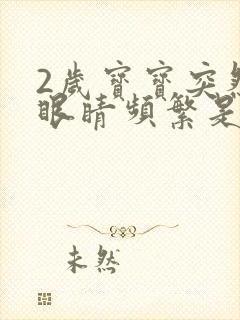 2歲寶寶突然
眼睛頻繁是
未然